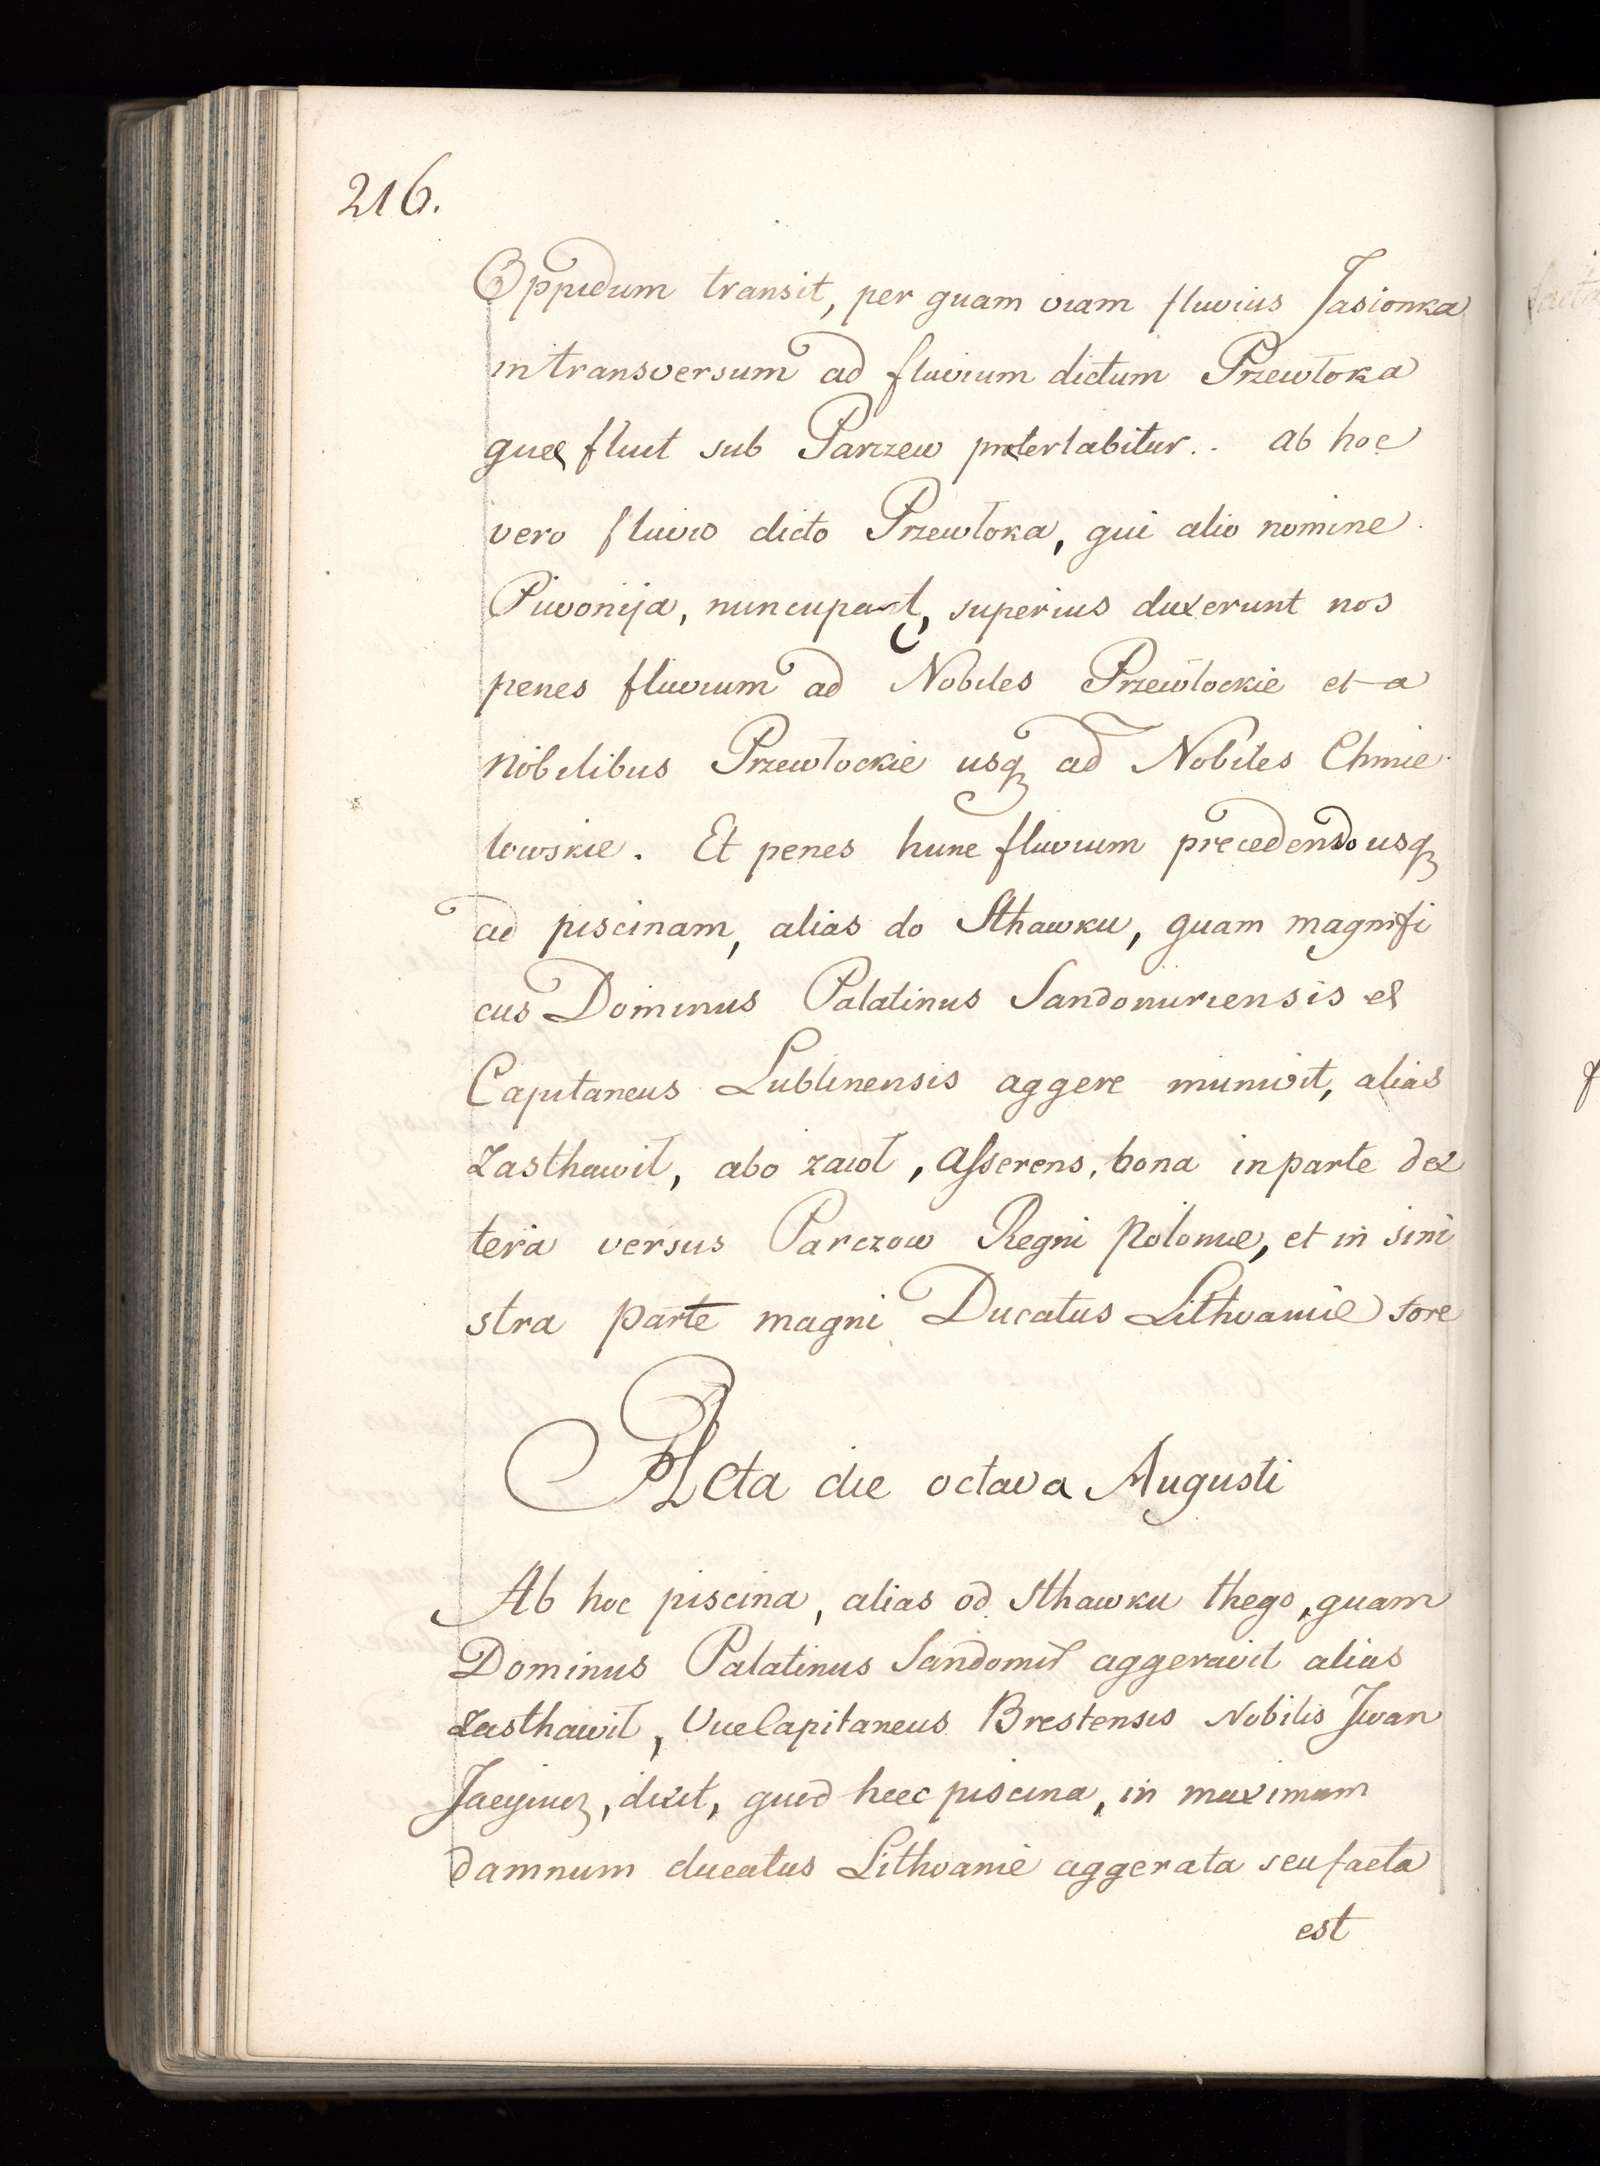 216.
Oppidum transit, per quam viam fluvius Jasionka
in transversum ad fluvium dictum Przewłoka
quæ fluit sub Parczew preterlabitur.. ab hoc
vero fluvio dicto Przewłoka, qui alio nomine
Piwonija, nuncupat, superius duxerunt nos
penes fluvium ad Nobiles Przewłockie et a
nobilibus Przewłockie usq ad Nobiles Chmie
lowskie. Et penes hunc fluvium precedendo usq
ad piscinam, alias do Sthawku, quam magnifi
cus Dominus Palatinus Sandomiriensis et
Capitaneus Lublinensis aggere munivit, alias
Zasthawil, abo zaiol, asserens, bona in parte dex
tera versus Parczow Regni Poloniæ, et in sini
stra parte magni Ducatus Lithvaniæ fore
Acta die octava Augusti
Ab hoc piscina, alias od Sthawku thego, quam
Dominus Palatinus Sandomir aggeravit alias
Zasthawil, ViceCapitaneus Brestensis Nobilis Jwan
dixit, quod heec piscina, in maximum
damnum ducatus Lithvanie aggerata seu facta
est